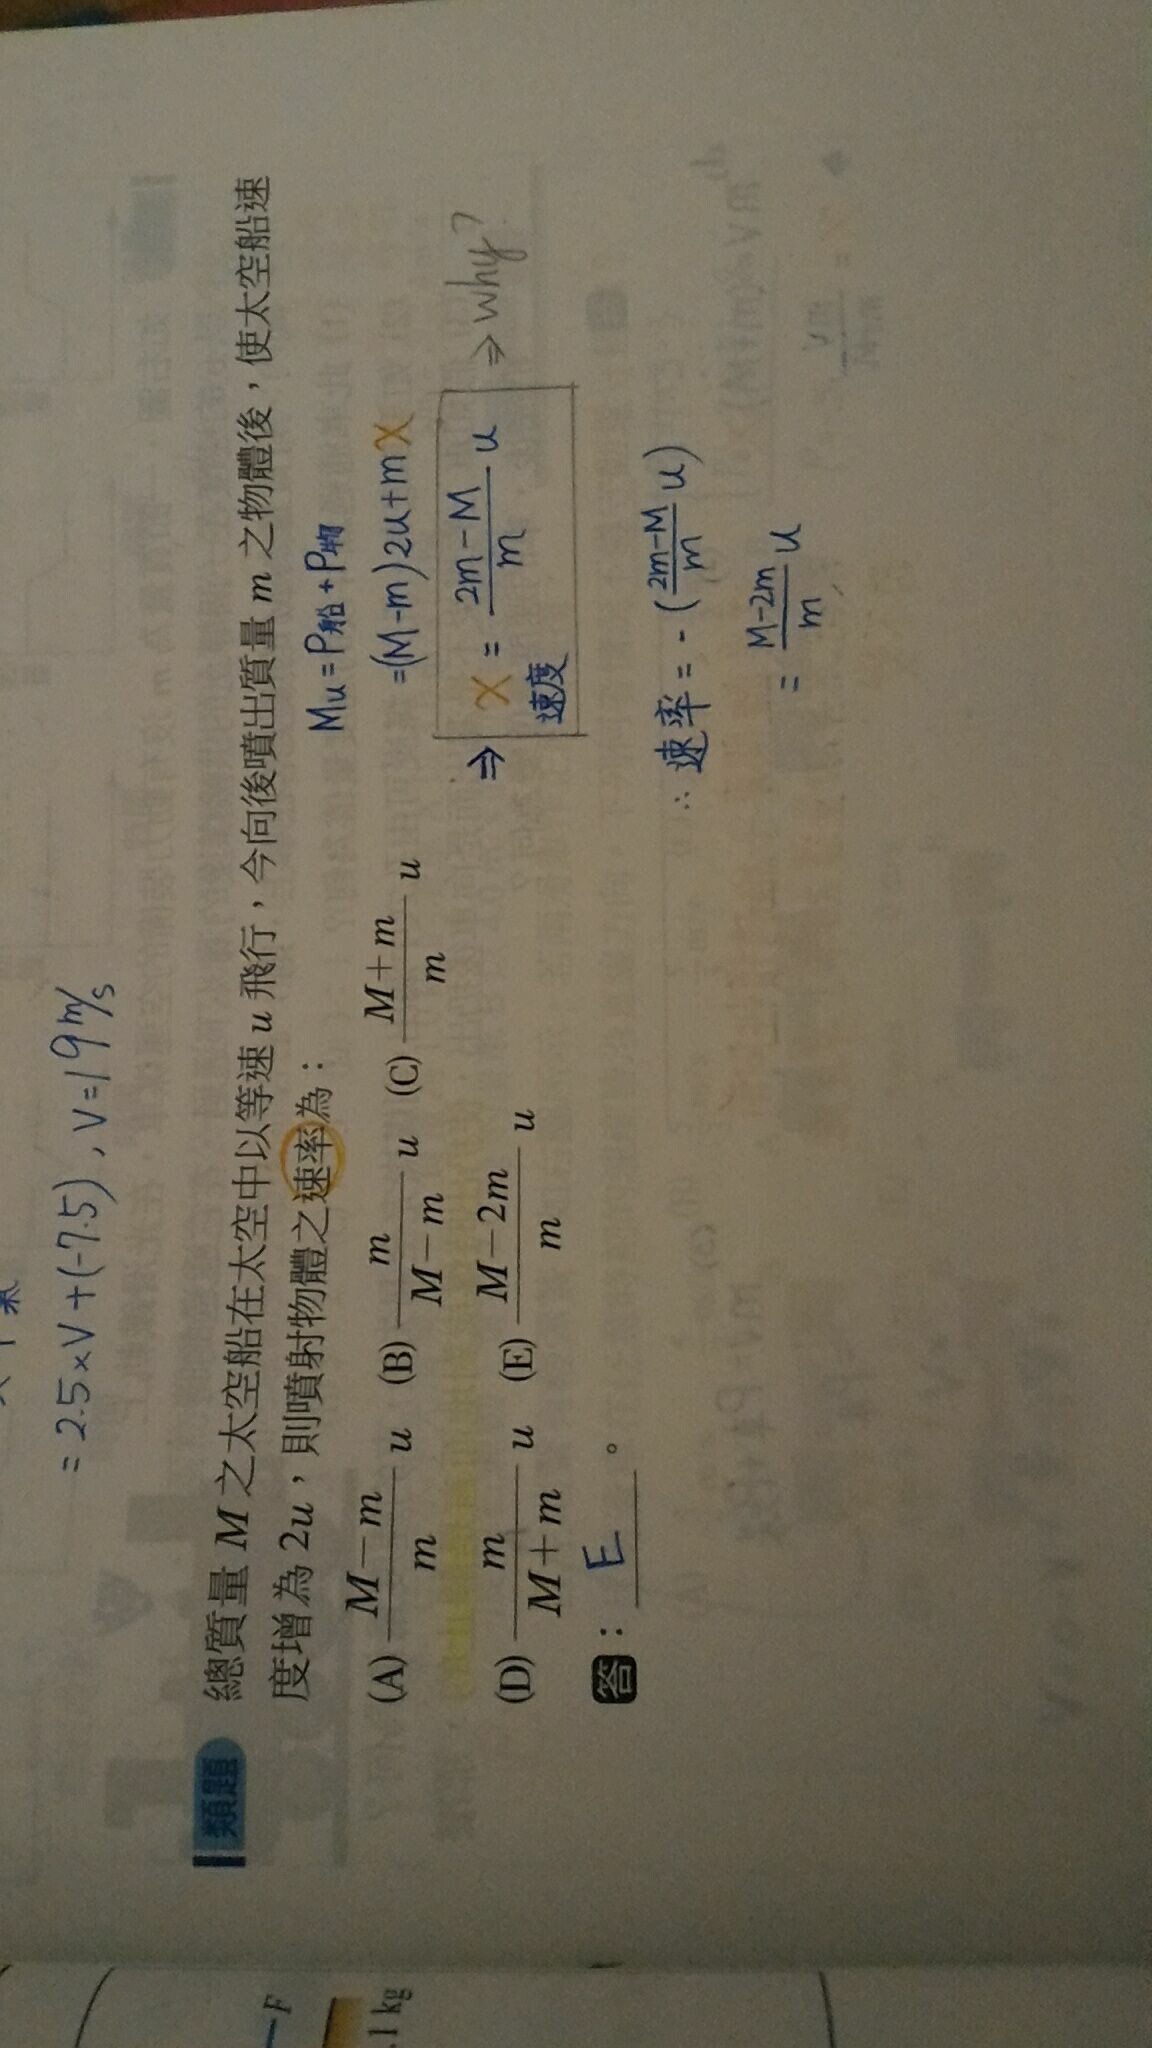 = 2.5×V+(-7.5), V=19m/s
類題
總質量 M 之太空船在太空中以等速 u 飛行，今向後噴出質量 m 之物體後，使太空船速
度增為 2u，則噴射物體之速率為：
(A) \frac{M-m}{m} u (B) \frac{m}{M-m} u (C) \frac{M+m}{m} u
(D) \frac{m}{M+m} u (E) \frac{M-2m}{m} u
答：E。
Mu = P船 + P物
=(M-m)2u+mX
⇒ X = \frac{2m-M}{m} u ⇒ why?
速度
∴ 速率 = -(\frac{2m-M}{m} u)
= \frac{M-2m}{m} u
F
.1 kg